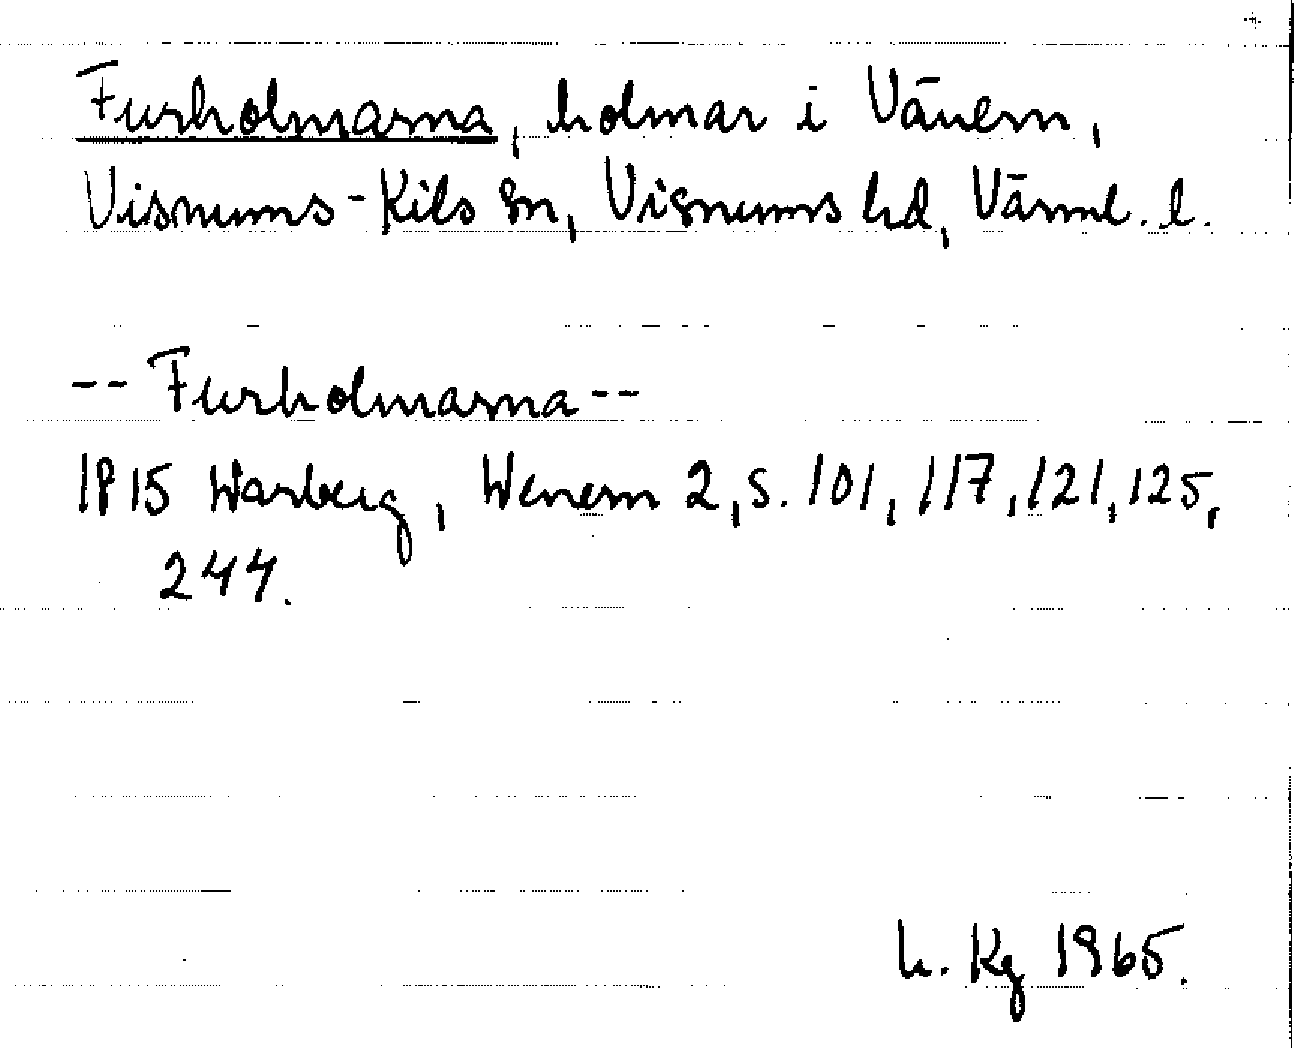 Furholmarna, holmar i Vänern,
Visnums-Kils sn, Visnums hd, Värml. l.
-- Furholmarna --
1815 Warberg, Wenern 2, s. 101, 117, 121, 125,
244.
h. Kg 1965.